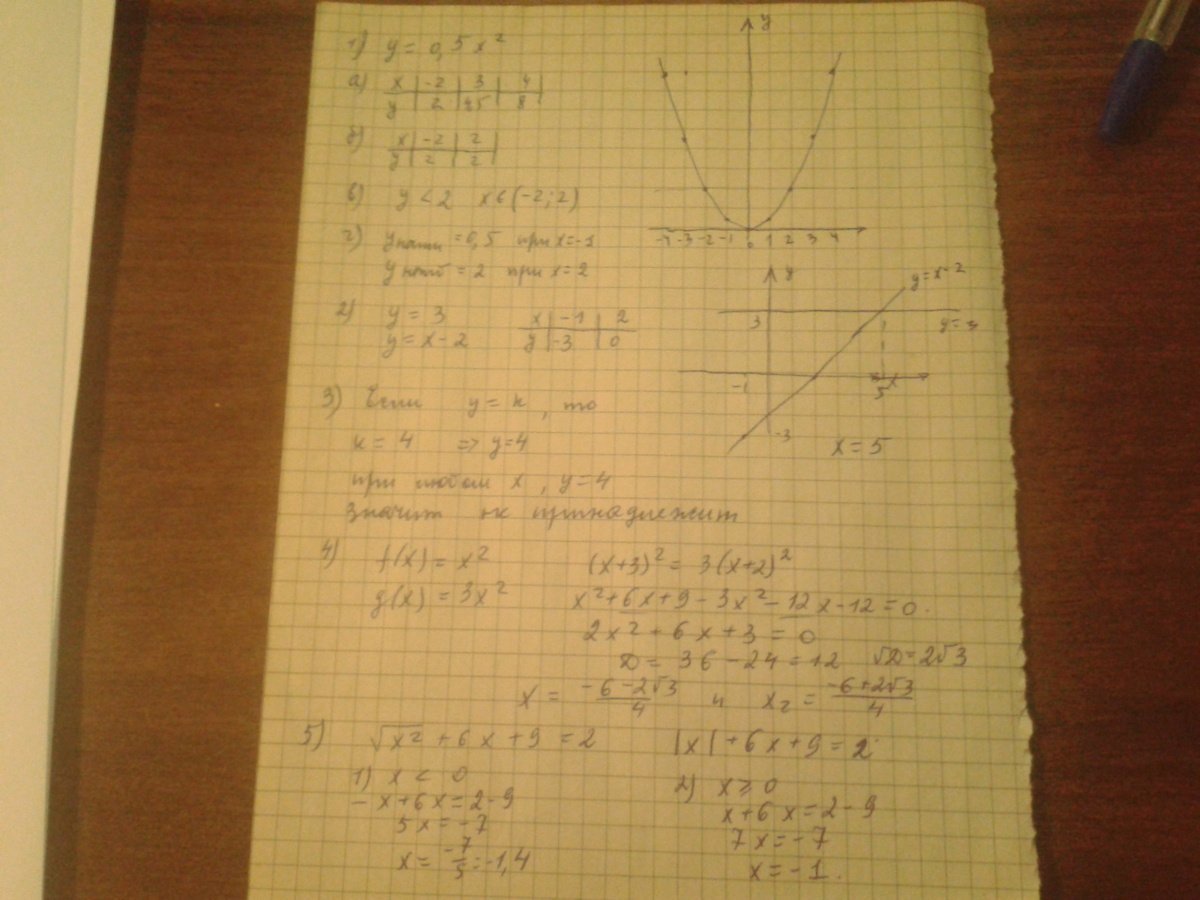 1) y = 0,5x²
а) x | -2 | 3 | 4 |
y | 2 | 4,5 | 8 |
б) x | -2 | 2 |
y | 2 | 2 |
в) y < 2 x ∈ (-2; 2)
г) y наим = 0,5 при x = -1
y наиб = 2 при x = 2
y
-4 -3 -2 -1 0 1 2 3 4
2) y = 3
y = x - 2
x | -1 | 2
y | -3 | 0
y
y = x - 2
3
y = 3
-1
5
x
-3
x = 5
3) Если y = к, то
к = 4 => y = 4
при любом x, y = 4
значит принадлежит
4) f(x) = x² (x+3)² = 3(x+2)²
g(x) = 3x² x² + 6x + 9 - 3x² - 12x - 12 = 0.
2x² + 6x + 3 = 0
D = 36 - 24 = 12 √D = 2√3
x = (-6 - 2√3)/4 и x₂ = (-6 + 2√3)/4
5) √x² + 6x + 9 = 2 |x| + 6x + 9 = 2
1) x < 0
- x + 6x = 2 - 9
5x = -7
x = -7/5 = -1,4
2) x ≥ 0
x + 6x = 2 - 9
7x = -7
x = -1.